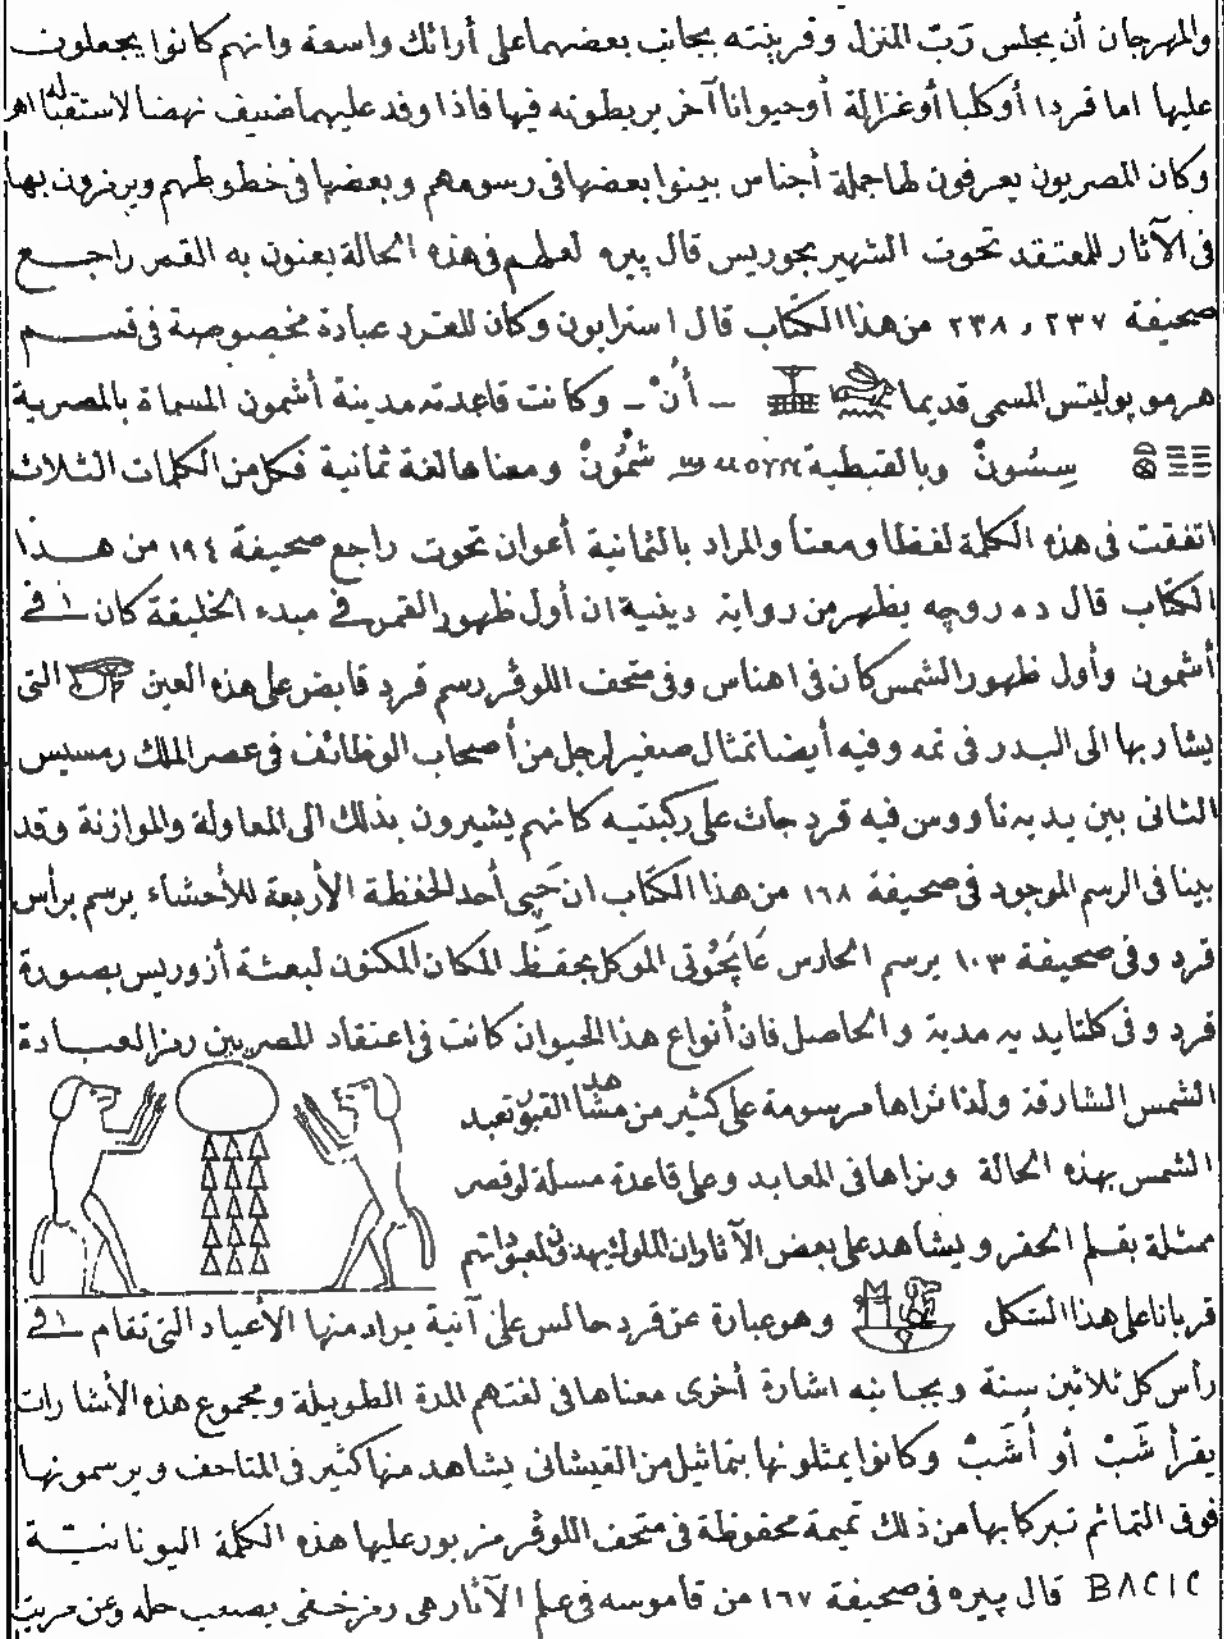 والمهرجان أن يجلس رَبّ المنزل وقرينته بجانب بعضهما على أرائك واسعة وانهم كانوا يجعلون
عليها اما قردا أوكلبا أوغزالة أوحيوانا آخر يربطونه فيها فاذا وفد عليهما ضيف نهضا لاستقباله اهـ
وكان المصريون يعرفون لها جملة أجناس بينوا بعضها فى رسومهم وبعضها فى خطوطهم ويرمزون بها
فى الآثار للمعتقد تحوت الشهير بجوريس قال پيره لعلهم فى هذه الحالة يعنون به القمر راجع
صحيفة ٢٣٧ و ٢٣٨ من هذا الكتاب قال استرابون وكان للقرد عبادة مخصوصة فى قسم
هرموپوليتس المسمى قديما ـ أُنْ ـ وكانت قاعدته مدينة أشمون المسماة بالمصرية
سِسُونْ وبالقبطية شْمُونْ ومعناها لغة ثمانية فكل من الكلمات الثلاث
اتفقت فى هذه الكلمة لفظا ومعنا والمراد بالثمانية أعوان تحوت راجع صحيفة ١٩٤ من هذا
الكتاب قال ده روچه يظهر من رواية دينية ان أول ظهور القمر فى مبدء الخليقة كان فى
أشمون وأول ظهور الشمس كان فى اهناس وفى متحف اللوڤر رسم قرد قابض على هذه العين التى
يشار بها الى البدر فى تمه وفيه أيضا تمثال صغير لرجل من أصحاب الوظائف فى عصر الملك رمسيس
الثانى بين يديه ناووس فيه قرد جاث على ركبتيه كانهم يشيرون بذلك الى المعاولة والموازنة وقد
بينا فى الرسم الموجود فى صحيفة ١٦٨ من هذا الكتاب ان حَپى أحد الحفظة الأربعة للأحشاء يرسم برأس
قرد وفى صحيفة ١٠٣ يرسم الحارس عَاپَحُوتى الموكل بحفظ المكان المكنون لبعثة أزوريس بصورة
قرد وفى كلتا يديه مدية والحاصل فان أنواع هذا الحيوان كانت فى اعتقاد المصريين رمزا لعبادة
الشمس الشارقة ولذا نراها مرسومة على كثير من مشاهد القبور تعبد
الشمس بهذه الحالة ونراها فى المعابد وعلى قاعدة مسلة لوقصر
ممثلة بقلم الحفر ويشاهد على بعض الآثار ان الملوك يهدون لمعبوداتهم
قربانا على هذا الشكل وهو عبارة عن قرد جالس على آنية يراد منها الأعياد التى تقام فى
رأس كل ثلاثين سنة وبجانبه اشارة أخرى معناها فى لغتهم المدة الطويلة ومجموع هذه الأشارات
يقرأ شَبْ أو أُشَبْ وكانوا يمثلونها بتماثيل من القيشانى يشاهد منها كثير فى المتاحف ويرسمونها
فوق التمائم تبركا بها من ذلك تميمة محفوظة فى متحف اللوڤر مزبور عليها هذه الكلمة اليونانية
BACIC قال پيره فى صحيفة ١٦٧ من قاموسه فى علم الآثار هى رمز خفى يصعب حله وعن مريت